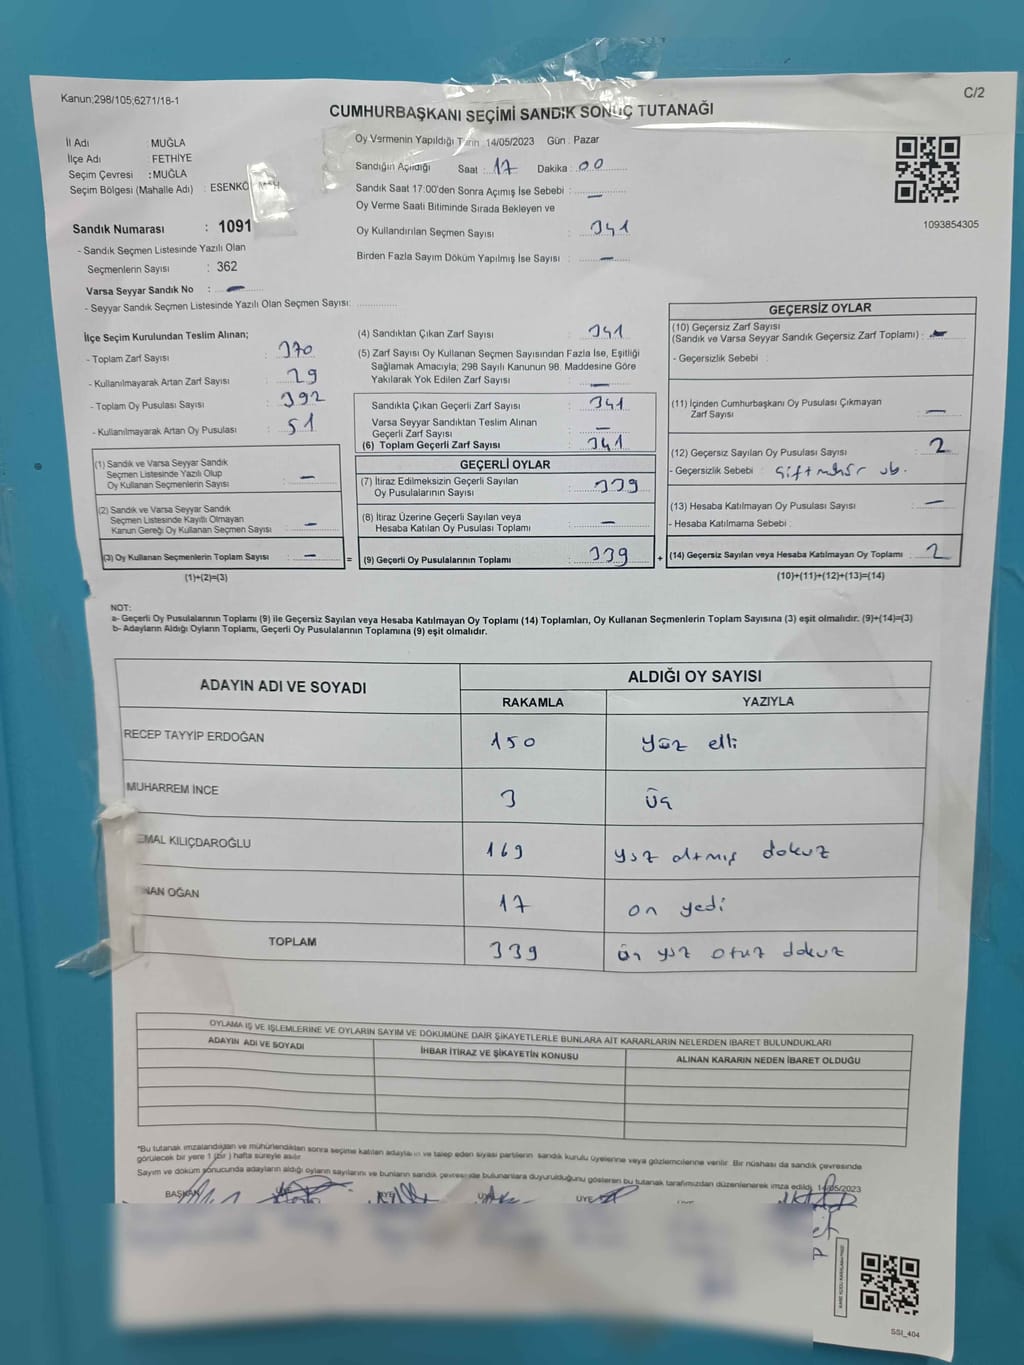 Kanun;298/105;6271/18-1
C/2
CUMHURBAŞKANI SEÇİMİ SANDIK SONUÇ TUTANAĞI
İl Adı : MUĞLA
İlçe Adı : FETHİYE
Seçim Çevresi : MUĞLA
Seçim Bölgesi (Mahalle Adı) : ESENKÖ
Oy Vermenin Yapıldığı Tarih 14/05/2023 Gün : Pazar
Sandığın Açıldığı Saat : 17 Dakika : 00
Sandık Saat 17:00'den Sonra Açımış İse Sebebi : —
Oy Verme Saati Bitiminde Sırada Bekleyen ve
Oy Kullandırılan Seçmen Sayısı : 341
Birden Fazla Sayım Döküm Yapılmış İse Sayısı : —
1093854305
Sandık Numarası : 1091
- Sandık Seçmen Listesinde Yazılı Olan
Seçmenlerin Sayısı : 362
Varsa Seyyar Sandık No : —
- Seyyar Sandık Seçmen Listesinde Yazılı Olan Seçmen Sayısı:
İlçe Seçim Kurulundan Teslim Alınan;
- Toplam Zarf Sayısı : 370
- Kullanılmayarak Artan Zarf Sayısı : 29
- Toplam Oy Pusulası Sayısı : 392
- Kullanılmayarak Artan Oy Pusulası : 51
(1) Sandık ve Varsa Seyyar Sandık
Seçmen Listesinde Yazılı Olup
Oy Kullanan Seçmenlerin Sayısı : —
(2) Sandık ve Varsa Seyyar Sandık
Seçmen Listesinde Kayıtlı Olmayan
Kanun Gereği Oy Kullanan Seçmen Sayısı : —
(3) Oy Kullanan Seçmenlerin Toplam Sayısı : — =
(1)+(2)=(3)
(4) Sandıktan Çıkan Zarf Sayısı : 341
(5) Zarf Sayısı Oy Kullanan Seçmen Sayısından Fazla İse, Eşitliği
Sağlamak Amacıyla; 298 Sayılı Kanunun 98. Maddesine Göre
Yakılarak Yok Edilen Zarf Sayısı : —
Sandıkta Çıkan Geçerli Zarf Sayısı : 341
Varsa Seyyar Sandıktan Teslim Alınan
Geçerli Zarf Sayısı : —
(6) Toplam Geçerli Zarf Sayısı : 341
GEÇERLİ OYLAR
(7) İtiraz Edilmeksizin Geçerli Sayılan
Oy Pusulalarının Sayısı : 339
(8) İtiraz Üzerine Geçerli Sayılan veya
Hesaba Katılan Oy Pusulası Toplamı : —
(9) Geçerli Oy Pusulalarının Toplamı : 339 +
GEÇERSİZ OYLAR
(10) Geçersiz Zarf Sayısı
(Sandık ve Varsa Seyyar Sandık Geçersiz Zarf Toplamı) : —
- Geçersizlik Sebebi :
(11) İçinden Cumhurbaşkanı Oy Pusulası Çıkmayan
Zarf Sayısı : —
(12) Geçersiz Sayılan Oy Pusulası Sayısı : 2
- Geçersizlik Sebebi : Çift mühür vb.
(13) Hesaba Katılmayan Oy Pusulası Sayısı : —
- Hesaba Katılmama Sebebi :
(14) Geçersiz Sayılan veya Hesaba Katılmayan Oy Toplamı : 2
(10)+(11)+(12)+(13)=(14)
NOT:
a- Geçerli Oy Pusulalarının Toplamı (9) ile Geçersiz Sayılan veya Hesaba Katılmayan Oy Toplamı (14) Toplamları, Oy Kullanan Seçmenlerin Toplam Sayısına (3) eşit olmalıdır. (9)+(14)=(3)
b- Adayların Aldığı Oyların Toplamı, Geçerli Oy Pusulalarının Toplamına (9) eşit olmalıdır.
ADAYIN ADI VE SOYADI
ALDIĞI OY SAYISI
RAKAMLA YAZIYLA
RECEP TAYYİP ERDOĞAN 150 yüz elli
MUHARREM İNCE 3 üç
EMAL KILIÇDAROĞLU 169 yüz altmış dokuz
NAN OĞAN 17 on yedi
TOPLAM 339 üç yüz otuz dokuz
OYLAMA İŞ VE İŞLEMLERİNE VE OYLARIN SAYIM VE DÖKÜMÜNE DAİR ŞİKAYETLERLE BUNLARA AİT KARARLARIN NELERDEN İBARET BULUNDUKLARI
ADAYIN ADI VE SOYADI İHBAR İTİRAZ VE ŞİKAYETİN KONUSU ALINAN KARARIN NEDEN İBARET OLDUĞU
*Bu tutanak imzalandıktan ve mühürlendikten sonra seçime katılan adayların ve talep eden siyasi partilerin sandık kurulu üyelerine veya gözlemcilerine verilir. Bir nüshası da sandık çevresinde
görülecek bir yere 1 (bir) hafta süreyle asılır.
Sayım ve döküm sonucunda adayların aldığı oyların sayılarını ve bunların sandık çevresinde bulunanlara duyurulduğunu gösteren bu tutanak tarafımızdan düzenlenerek imza edildi. 14/05/2023
BAŞKAN ÜYE ÜYE ÜYE
SSI_404